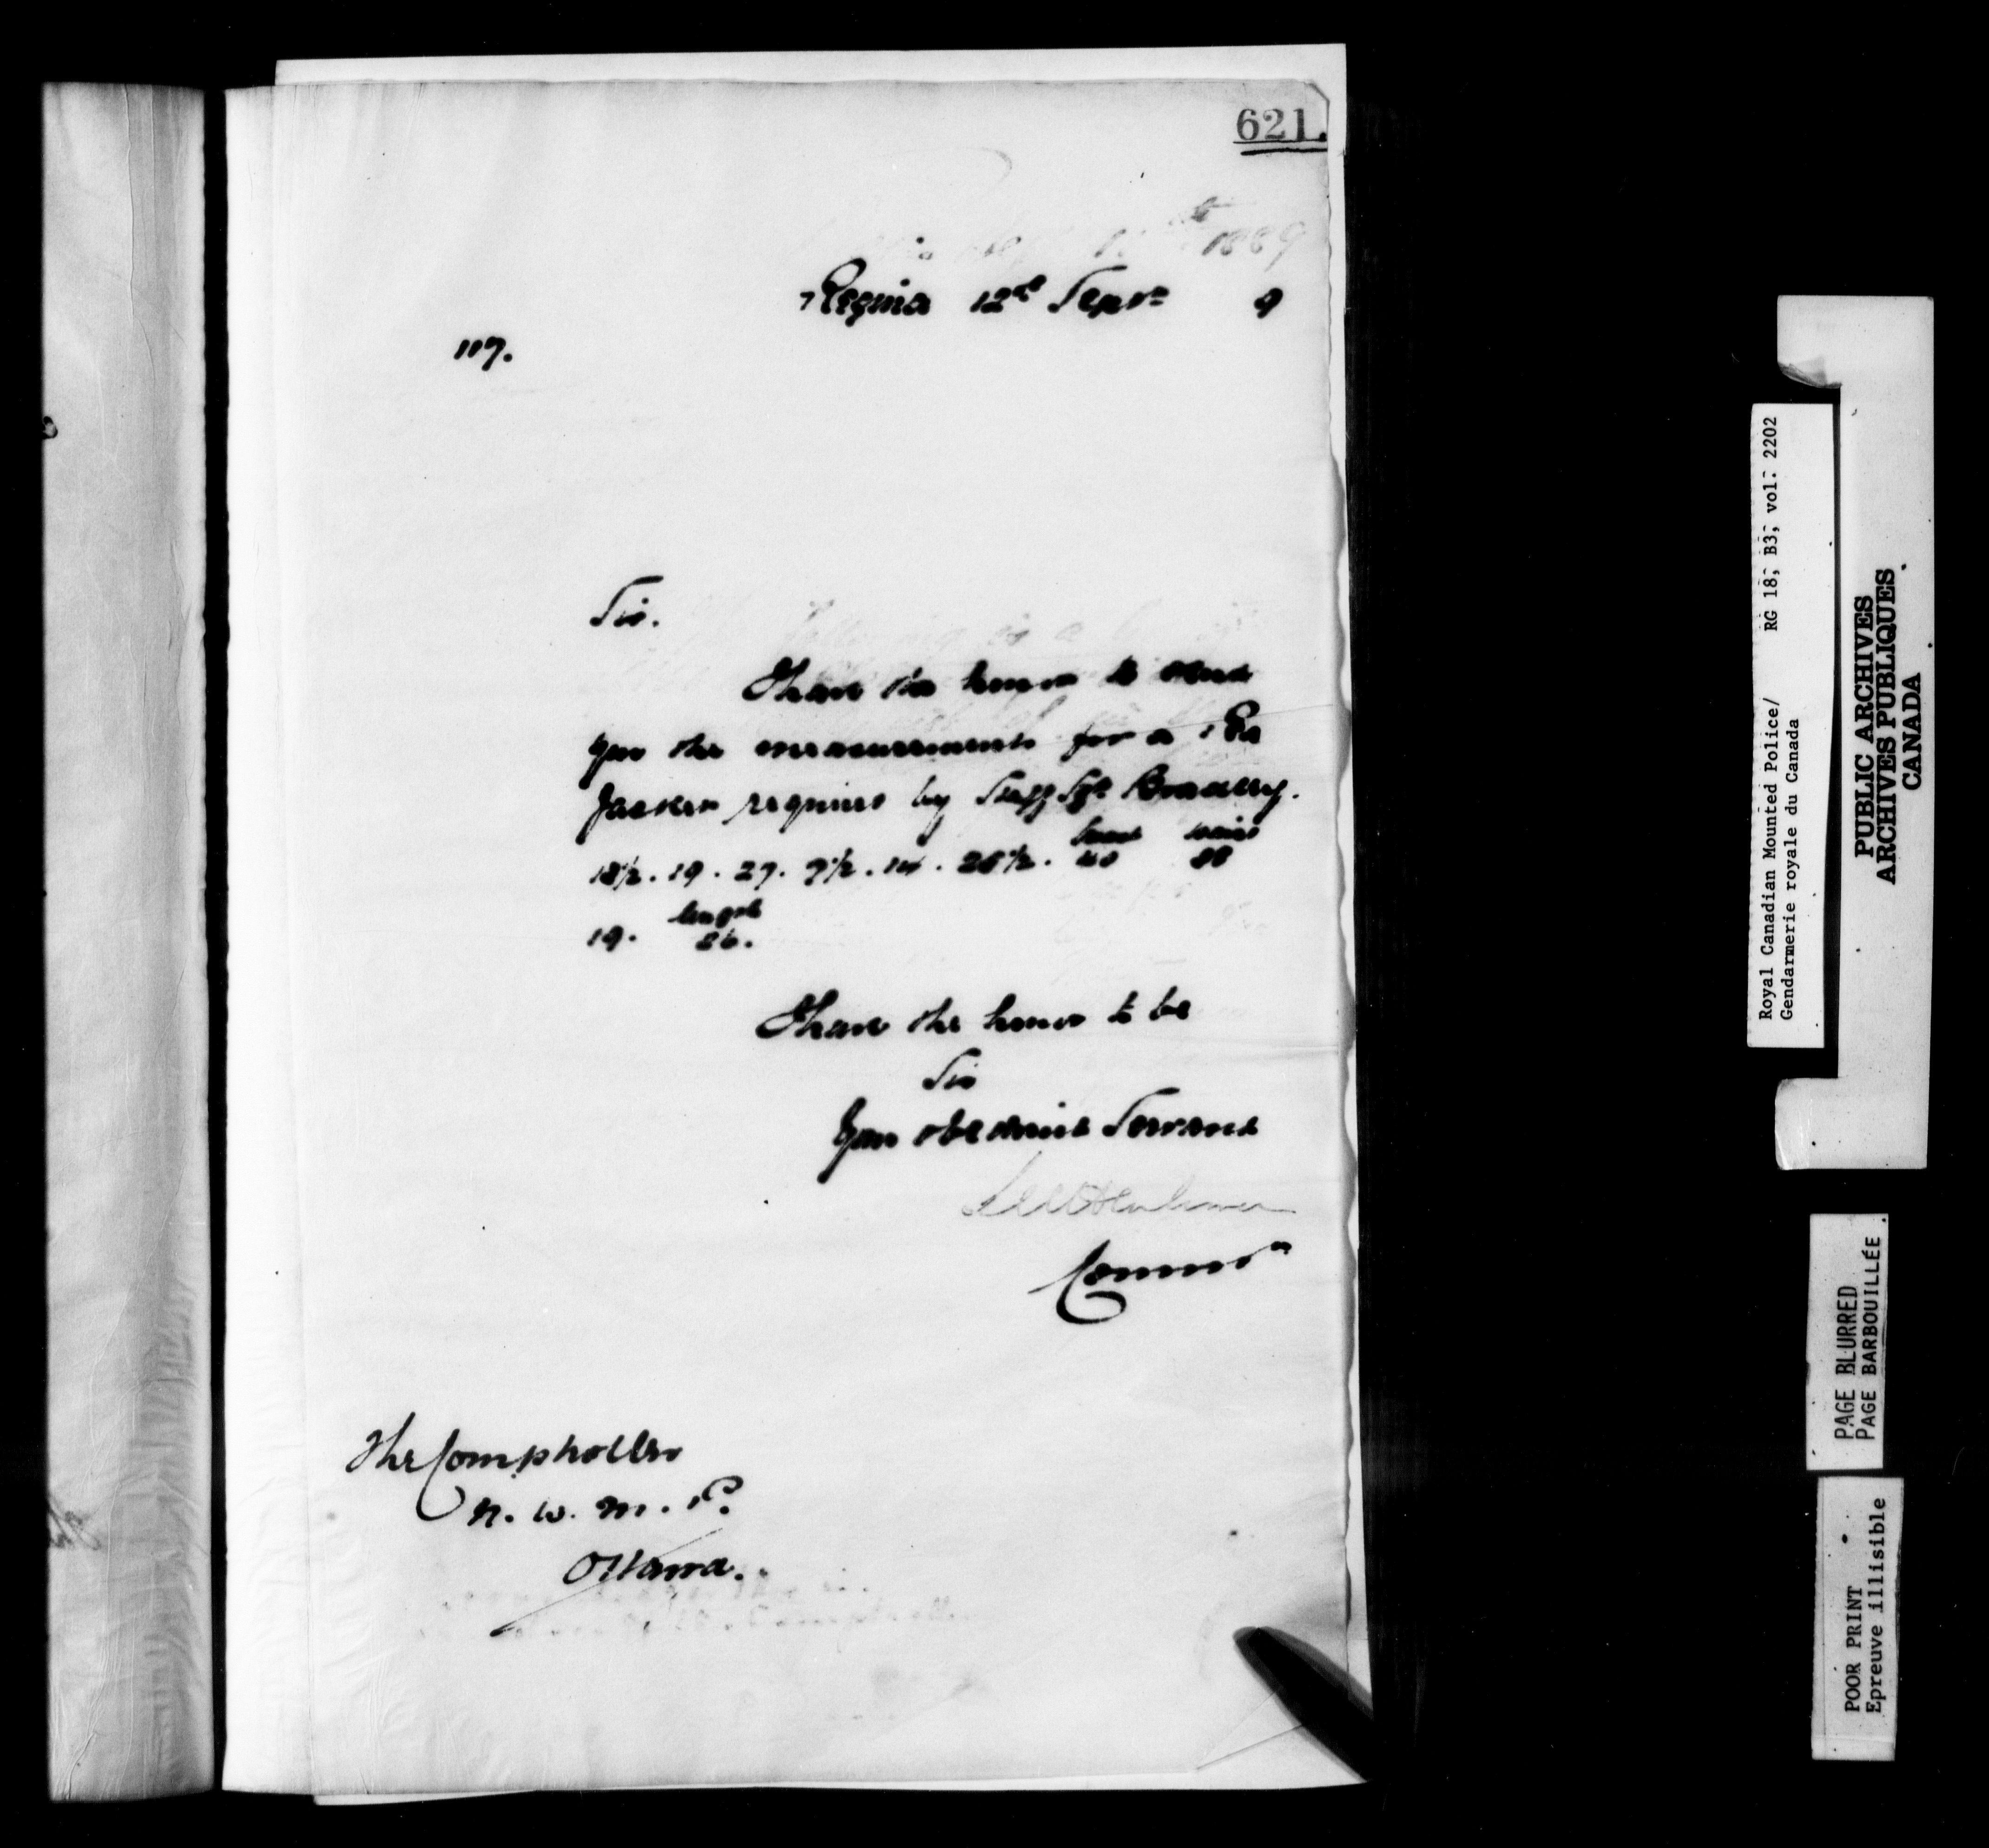 621.
Regina 12th Sept. 9
117.
Sir.
I have the honor to send
you the measurements for a Pea
Jacket required by Staff Sgt Bradley.
breast waist
18½ . 19 . 27 . 7½ . 14 . 26½ . 40 38
length
19. 26.
I have the honor to be
Sir
Your obedient Servant
Commr
The Comptroller
N. W. M. P.
Ottawa.
Royal Canadian Mounted Police/ RG 18, B3, vol. 2202
Gendarmerie royale du Canada
PUBLIC ARCHIVES
ARCHIVES PUBLIQUES
CANADA
PAGE BLURRED
PAGE BARBOUILLÉE
POOR PRINT
Epreuve illisible